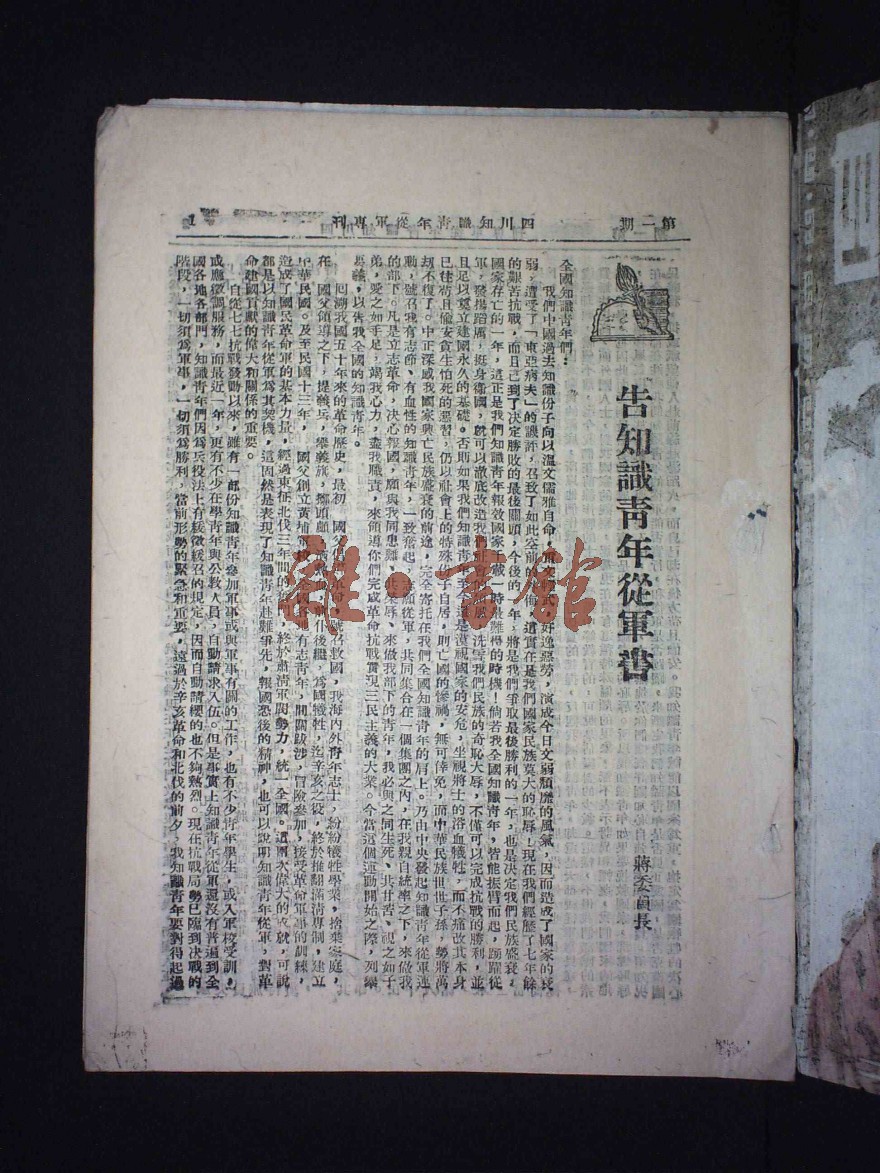 第二期
四川知識青年從軍專刊
1
告知識青年從軍書
蔣委員長
全國知識青年們：
我們中國過去知識份子向以溫文儒雅自命，重文輕武，好逸惡勞，演成今日文弱頹靡的風氣，因而造成了國家的衰
弱，遭受了「東亞病夫」的譏評，召致了如此空前的外侮，這實在是我們國家民族莫大的恥辱！現在我們經歷了七年餘
的艱苦抗戰，而且已到了決定勝敗的最後關頭，今後的一年，將是我們爭取最後勝利的一年，也是決定我們民族盛衰，
國家存亡的一年，這正是我們知識青年報效國家千載一時最難得的時機！倘若我全國知識青年，皆能振臂而起，踴躍從
軍，發揚蹈厲，挺身衛國，就可以澈底改造我們社會的
洗雪我們民族的奇恥大辱，不僅可以完成抗戰的勝利，並
且足以奠立建國永久的基礎。否則如果我們知識青年至今還是漠視國家的安危，坐視將士的浴血犧牲，而不痛改其本身
已往苟且偷安貪生怕死的惡習，仍以社會上的特殊份子自居，則亡國的慘禍，無可倖免，而中華民族世世子孫，勢將萬
刧不復了。中正深感我國家興亡民族盛衰的前途，完全寄托在我們全國知識青年的肩上。乃由中央發起知識青年從軍運
動，號召我有志節、有血性的知識青年，一致奮起，志願從軍，共同集合在一個集團之內，在我親自統率之下，來做我
的部下。凡是立志革命，決心報國，願與我同患難、共榮辱、來做我部下的青年，我必與之同生死、共甘苦、視之如子
弟，愛之如手足，竭我心力，盡我職責，來領導你們完成革命抗戰實現三民主義的大業。今當這個運動開始之際，列舉
要義，以告我全國的知識青年。
回溯我國五十年來的革命歷史，最初　國父倡導革命，號召救國，我海內外青年志士，紛紛犧牲學業，捨棄家庭，
在　國父領導之下，提義兵，舉義旗，擲頭顱，
前仆後繼，為國犧牲，迄辛亥之役，終於推翻滿清專制，建立
中華民國。及至民國十三年，　國父創立黃埔軍校，全國各地有志青年，間關跋涉，冒險參加，接受革命軍事的訓練，
造成了國民革命軍的基本力量，經過東征北伐三年間的奮鬥，終於肅清軍閥勢力，統一全國。這兩次偉大的成就，可說
都是以知識青年從軍為其契機，這固然是表現了知識青年赴難爭先，報國恐後的精神，也可以說明知識青年從軍，對革
命建國貢獻的偉大和關係的重要。
自從七七抗戰發動以來，雖有一部份知識青年參加軍事或與軍事有關的工作，也有不少青年學生，或入軍校受訓，
或應徵調服務，而最近一年，更有不少在學青年與公教人員，自動請求入伍。但是事實上知識青年從軍還沒有普遍到全
國各地各部門，知識青年們因為兵役法上有緩徵緩召的規定，因而自動請纓的也不夠熱烈。現在抗戰局勢已臨到決戰的
階段，一切須為軍事，一切須為勝利，當前形勢的緊急和重要，遠過於辛亥革命和北伐的前夕，我知識青年要對得起過
雜·書館